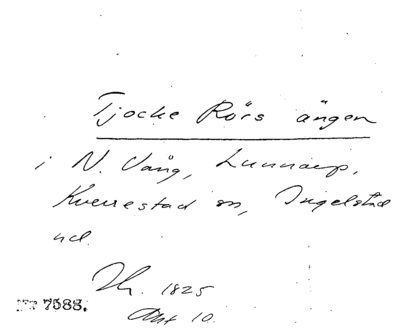 Tjocke Rörs ängen
i N. Vång, Lunnarp,
Kverrestad sn, Ingelstad
hd.
Lh. 1825
Akt 10.
7588.